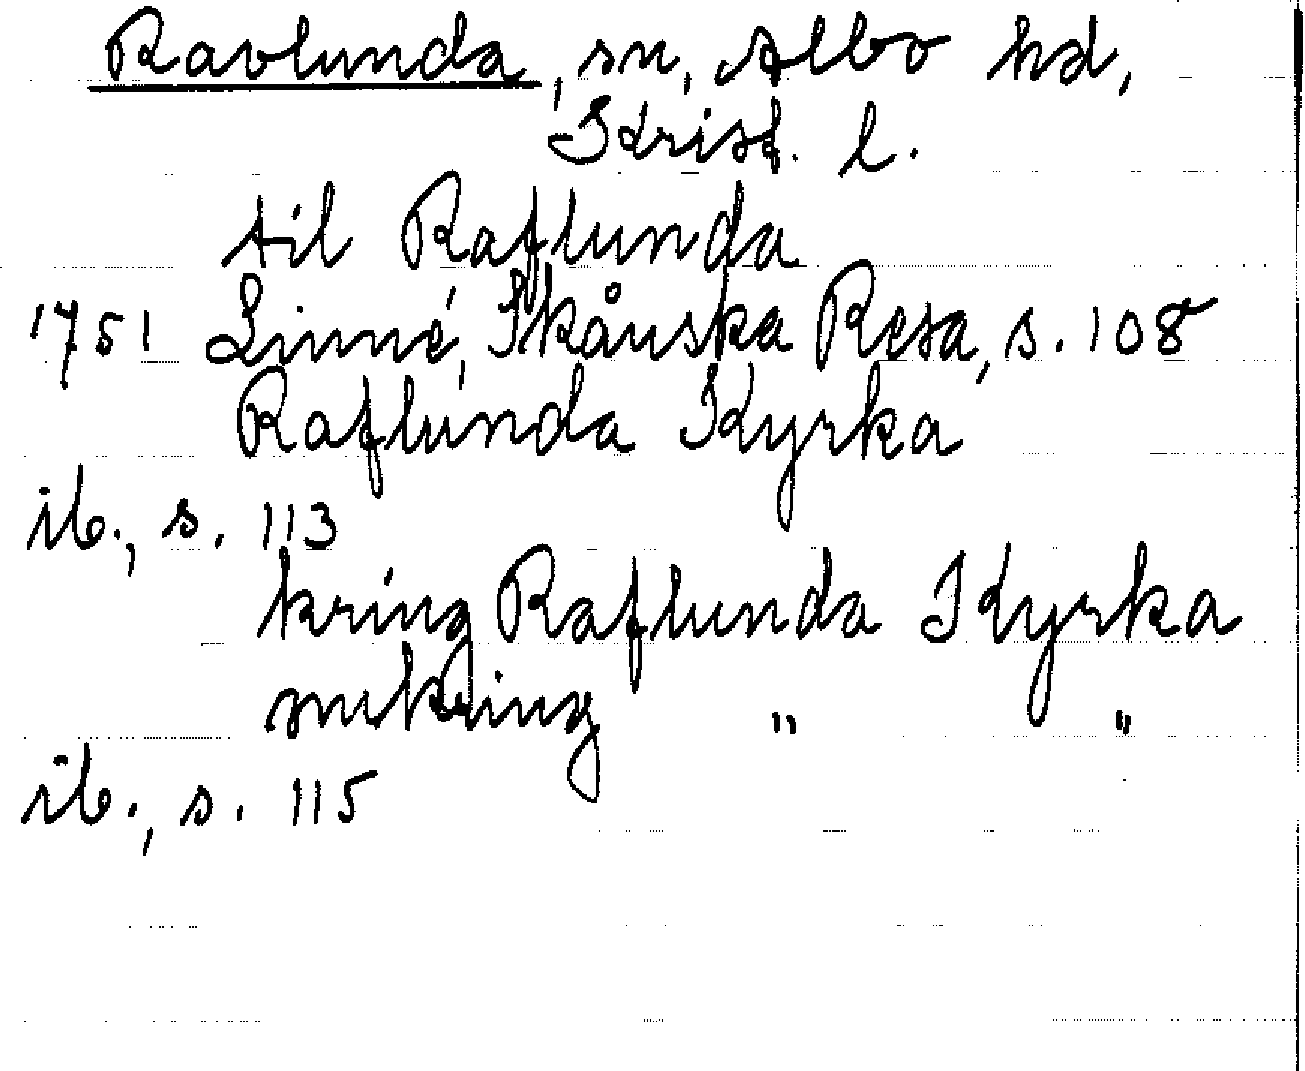 Ravlunda, sn, Albo hd,
Krist. l.
til Raflunda
1751 Linné, Skånska Resa, s. 108
Raflunda Kyrka
ib., s. 113
kring Raflunda Kyrka
omkring " "
ib., s. 115